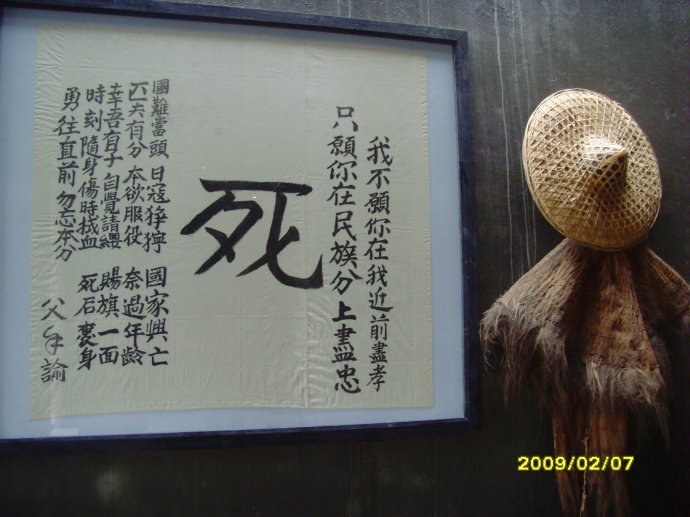 我不願你在我近前盡孝
只願你在民族分上盡忠
死
國難當頭 日寇猙獰 國家興亡
匹夫有分 本欲服役 奈過年齡
幸吾有子 自覺請纓 賜旗一面
時刻隨身 傷時拭血 死后裹身
勇往直前 勿忘本分
父手諭
2009/02/07